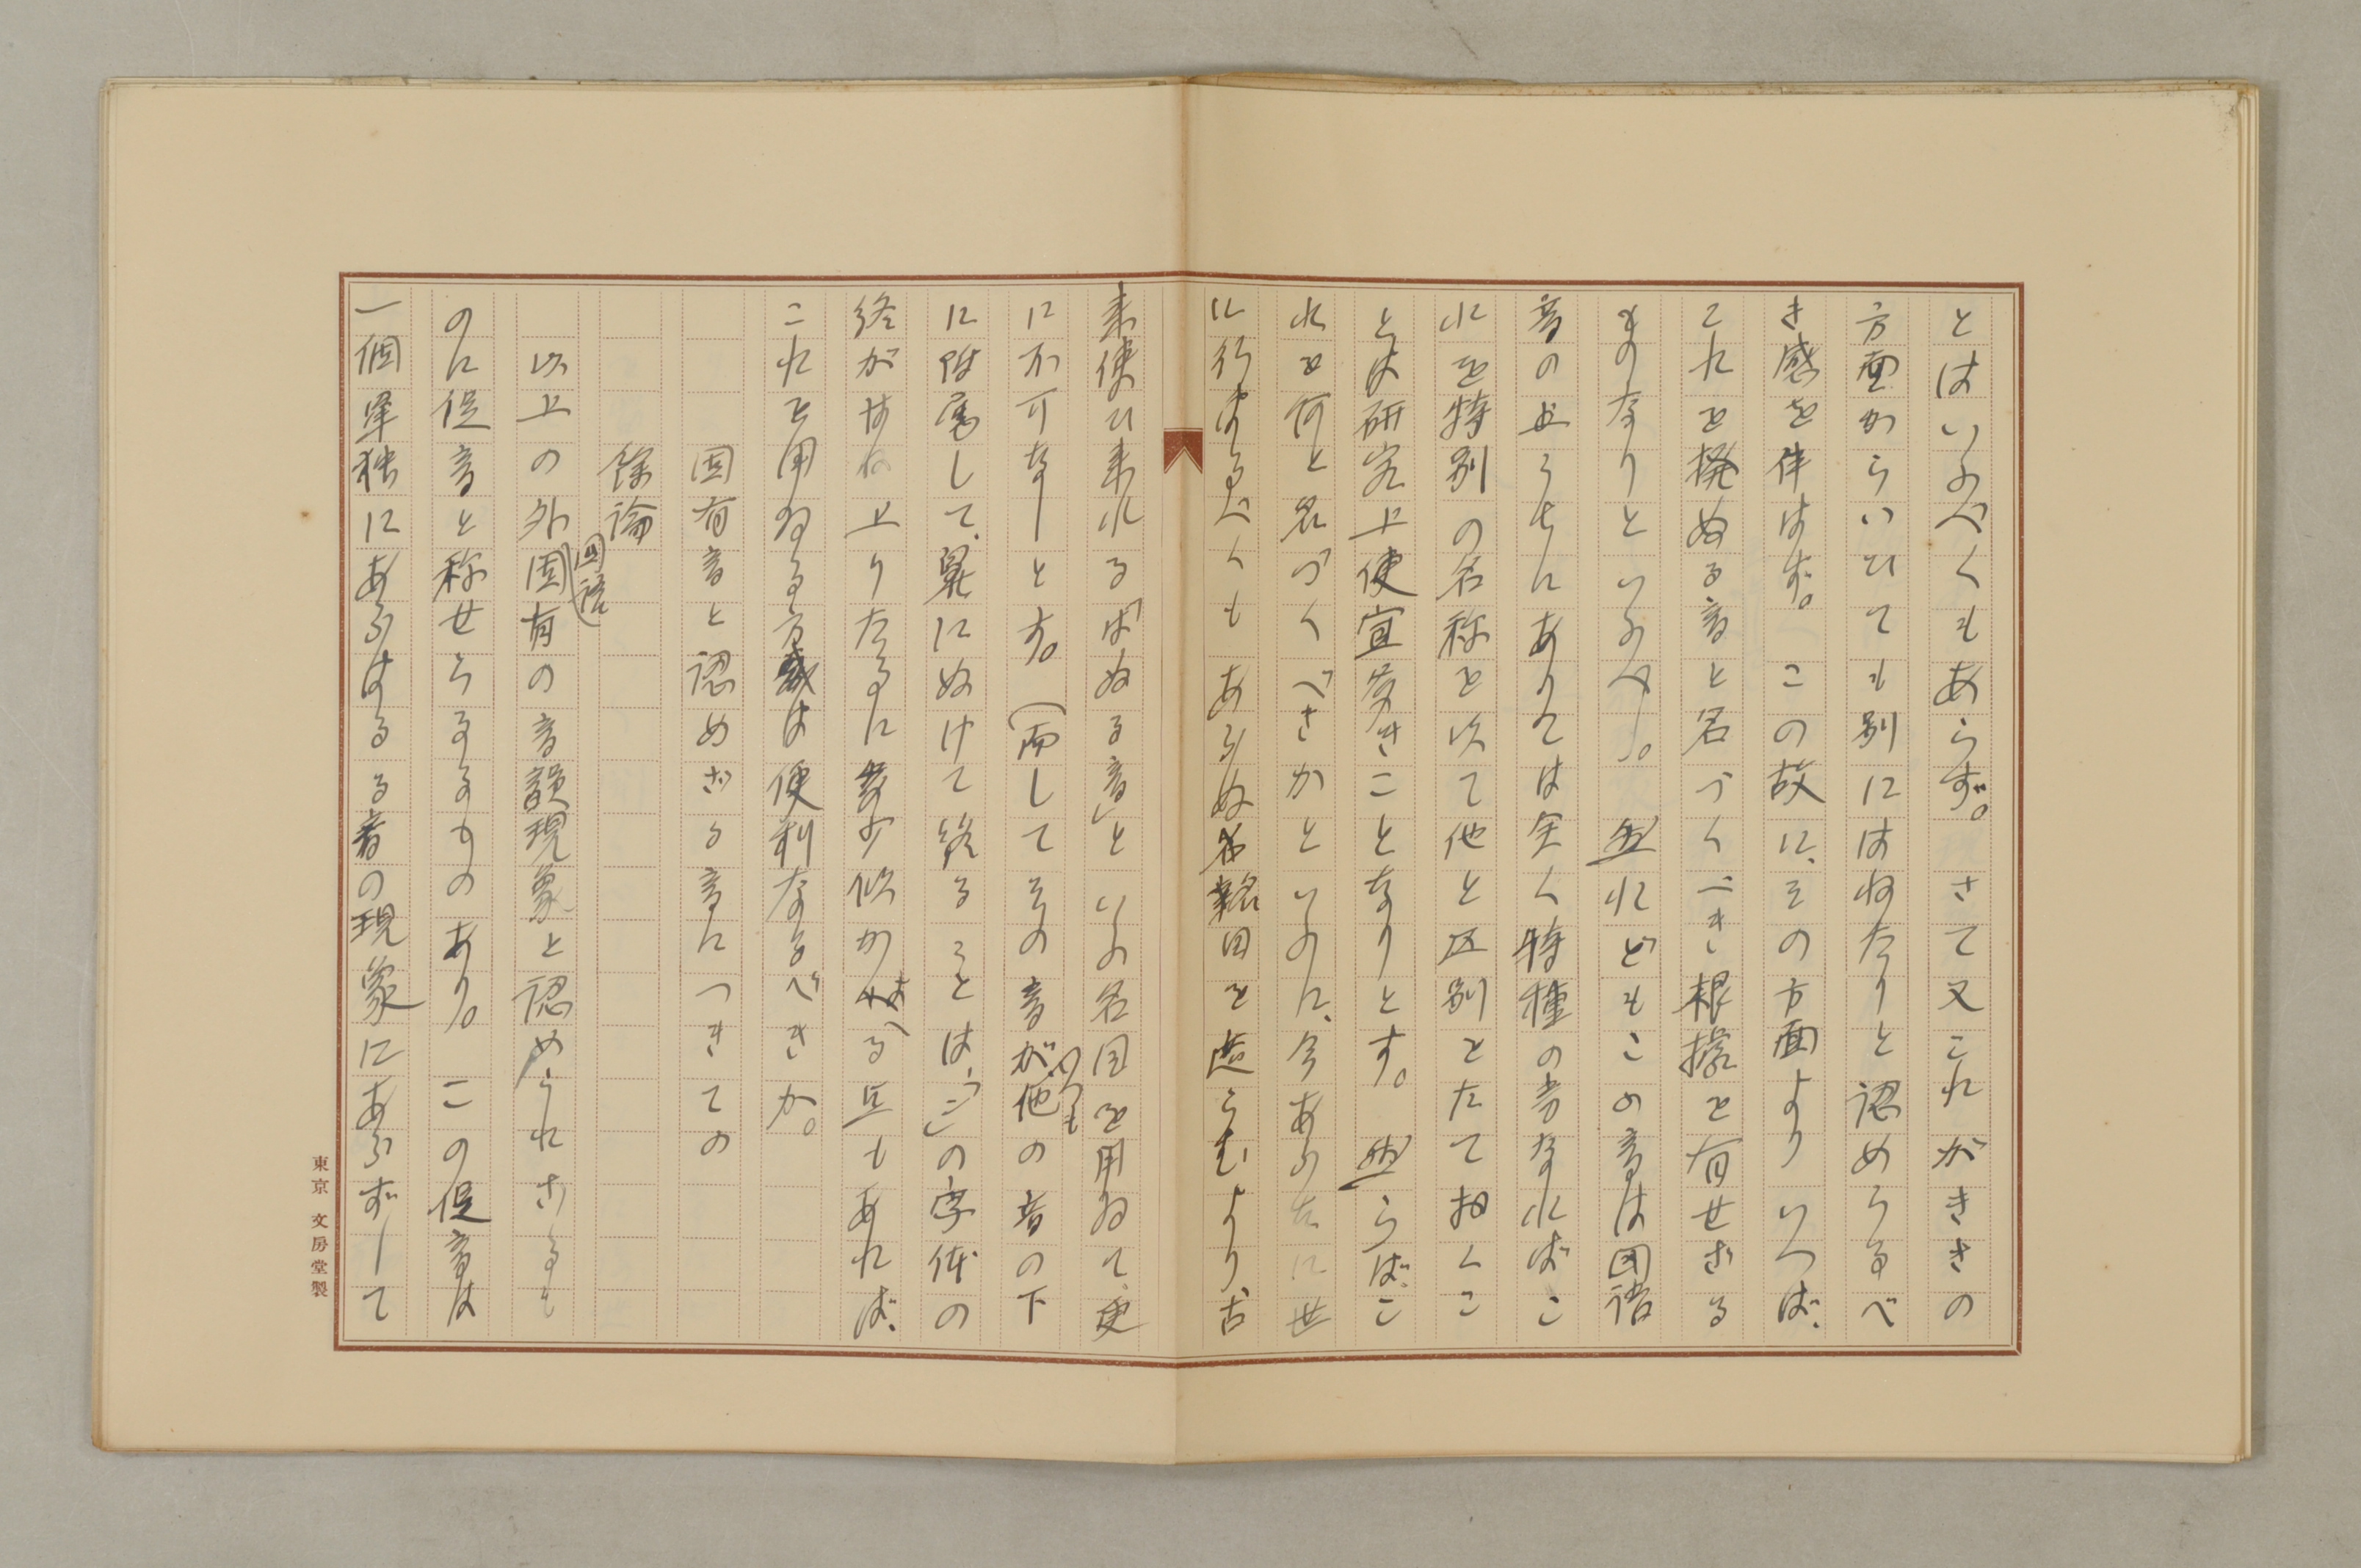 とはいふべくもあらず。さて又これがききの
方面からいひても別にはねたりと認めらるべ
き感を伴はず。この故に、その方面よりいへば、
これを撥ぬる音と名づくべき根據を有せざる
ものなりといふべし。然れどもこの音は国語
音のうちにありては全く特種の音なればこ
れを特別の名称を以て他と区別をたておくこ
とは研究上便宜多きことなりとす。然らば、こ
れを何と名づくべきかといふに、今あらたに世
に行はるべくもあらぬ名目を造らむより、古
来使ひ来れる「はぬる音」といふ名目を用ゐて、更
にか可なしとす。(而してその音がいつも他の音の下
に附属して、鼻にぬけて終ることは、「ン」の字体の
終がはね上りたるに多少似かよへる点もあれば、
これを用ゐる方は便利なるべきか。
固有音と認めざる音につきての
餘論
以上の外国語固有の音韻現象と認められざるも
のに促音と称せらるるものあり。この促音は
一個単独にあらはるる音の現象にあらずして
東京 文房堂製